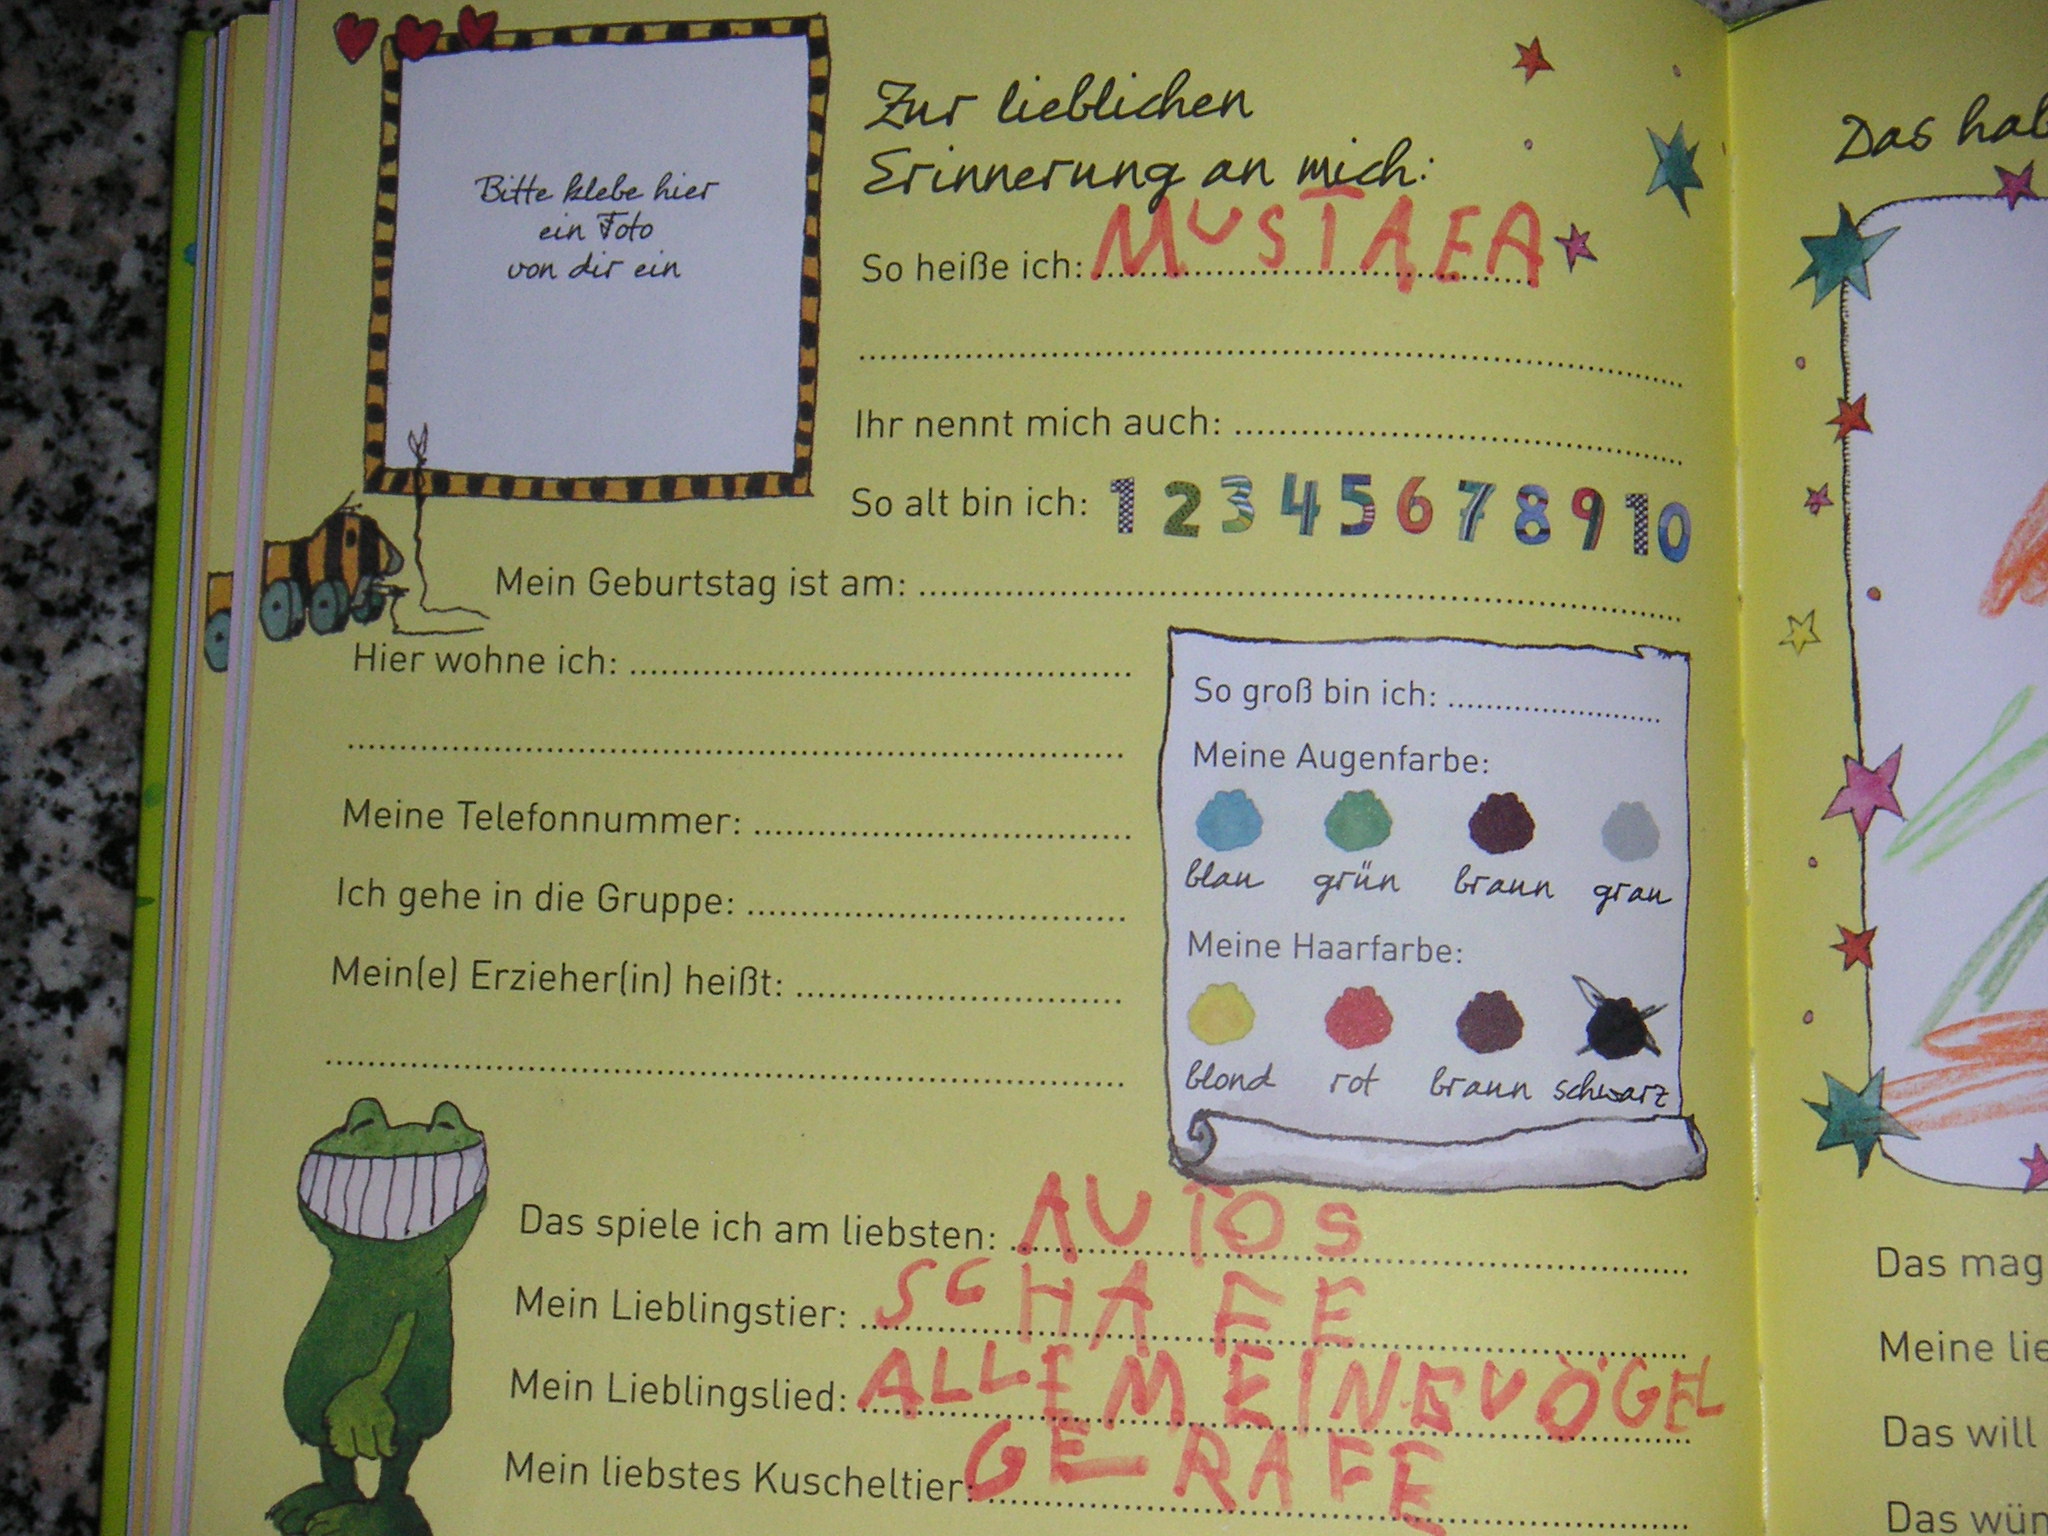 Bitte klebe hier
ein Foto
von dir ein
Zur lieblichen
Erinnerung an mich:
So heiße ich: MUSTAEA
Ihr nennt mich auch:
So alt bin ich: 1 2 3 4 5 6 7 8 9 10
Mein Geburtstag ist am:
Hier wohne ich:
Meine Telefonnummer:
Ich gehe in die Gruppe:
Mein(e) Erzieher(in) heißt:
So groß bin ich:
Meine Augenfarbe:
blau grün braun grau
Meine Haarfarbe:
blond rot braun schwarz
Das spiele ich am liebsten: AUTOS
Mein Lieblingstier: SCHAFE
Mein Lieblingslied: ALLEMEINEVÖGEL
Mein liebstes Kuscheltier: GERAFE
Das hab
Das mag
Meine lie
Das will
Das wün